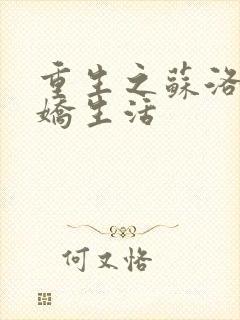 重生之蘇洛
嬌生活
何又恪